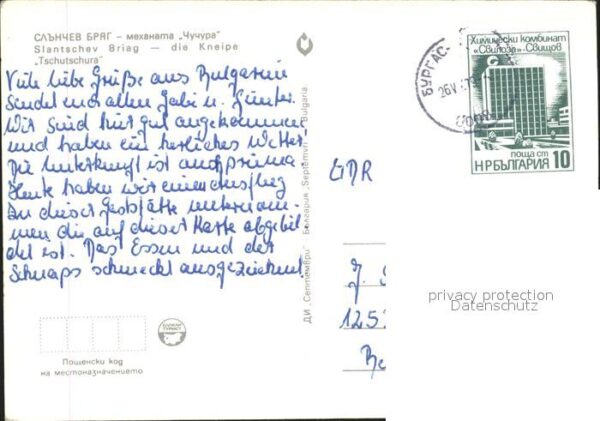 СЛЪНЧЕВ БРЯГ - механата „Чучура“
Slantschev Briag — die Kneipe
„Tschutschura“
Viele liebe Grüße aus Bulgarien
sendet und allen Gabi u. Günter.
Wir sind hier gut angekommen
und haben ein herliches Wetter.
Die Unterkunft ist auch prima
Heute haben wir einen Ausflug
zu dieser Gaststätte unternom-
men die auf dieser Karte abgebil
det ist. Das Essen und der
Schnaps schmeckt ausgezeichnet
Пощенски код
на местоназначението
БАЛКАН
ТУРИСТ
ДИ „Септември“ България „Septemvri“ Bulgaria
БУРГАС
26 V
Химически комбинат
„Свилоза“-Свищов
поща ст
НР БЪЛГАРИЯ 10
GDR
J.
125
Be
privacy protection
Datenschutz